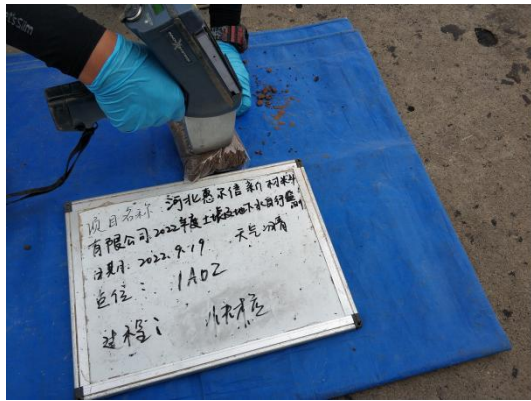 项目名称 河北惠尔信新材料
有限公司2022年度土壤及地下水自行监测
日期: 2022.9.19 天气: 晴
点位: 1A02
过程: 快检